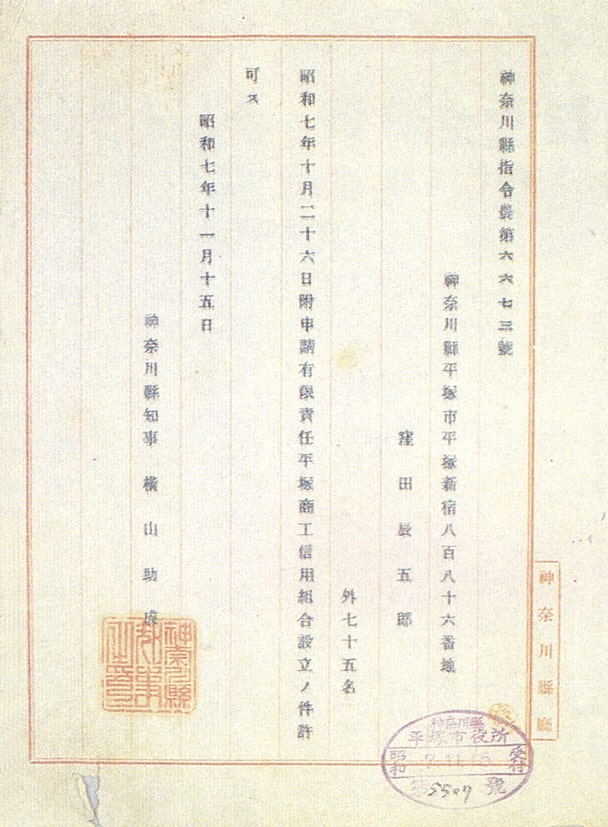 神奈川縣指令農第六六七三號
神奈川縣平塚市平塚新宿八百八十六番地
窪田辰五郎
外七十五名
昭和七年十月二十六日附申請有限責任平塚商工信用組合設立ノ件許
可ス
昭和七年十一月十五日
神奈川縣知事 橫山助成
神奈川縣廳
神奈川縣
平塚市役所
昭和 7.11.15 受付
第5507號